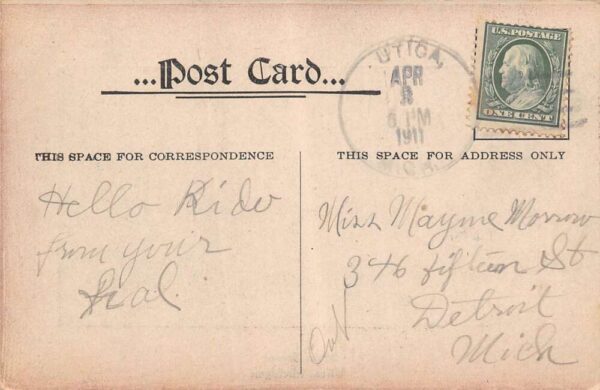 ...Post Card...
U.S. POSTAGE
ONE CENT
UTICA,
APR
8
6 PM
1911
MICH.
THIS SPACE FOR CORRESPONDENCE
THIS SPACE FOR ADDRESS ONLY
Hello Kido
from your
Pal.
Miss Mayme Morrow
346 fifteen St
Detroit
Mich